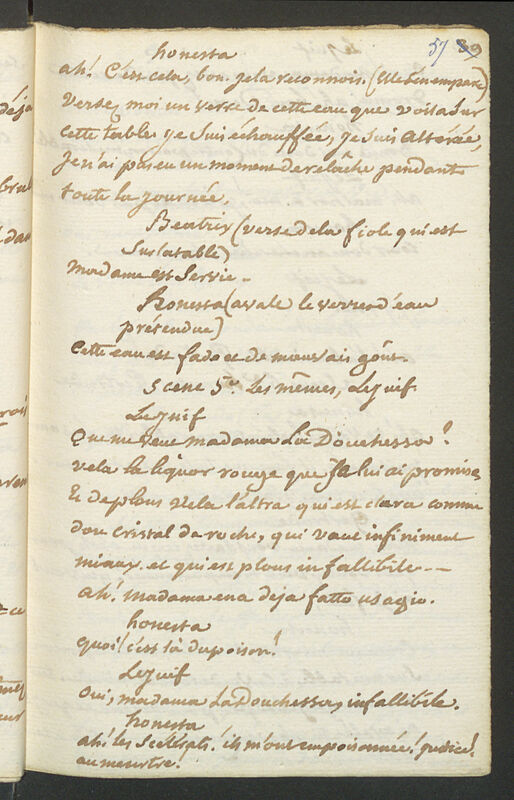 57 39
honesta
ah! C'est cela, bon. je la reconnois. (Elle s'en empare)
Versez moi un verre de cette eau que voila sur
cette table. je suis échauffée, je suis alterée,
je n'ai pas eu un moment de relâche pendant
toute la journée.
Beatrix (verse de la fiole qui est
sur la table)
Madame est servie.
Honesta (avale le verre d'eau
prétendue)
Cette eau est fade et de mauvais goût.
Scene 5e. Les mêmes, Le juif
Le juif
Que me veut madama La Douchessa?
Vela la liquor rouge que je lui ai promise
Et de plous vela l'altra qui est clara comme
dou cristal da roche, qui vaut infiniment
miaux. et qui est plous infallibile --
ah! madama en a deja fatto usagio.
honesta
quoi! c'est là du poison!
Le juif
Oui, madama La Douchessa, infallibile.
honesta
ah! les scelerats! ils m'ont empoisonnée! justice!
au meurtre!